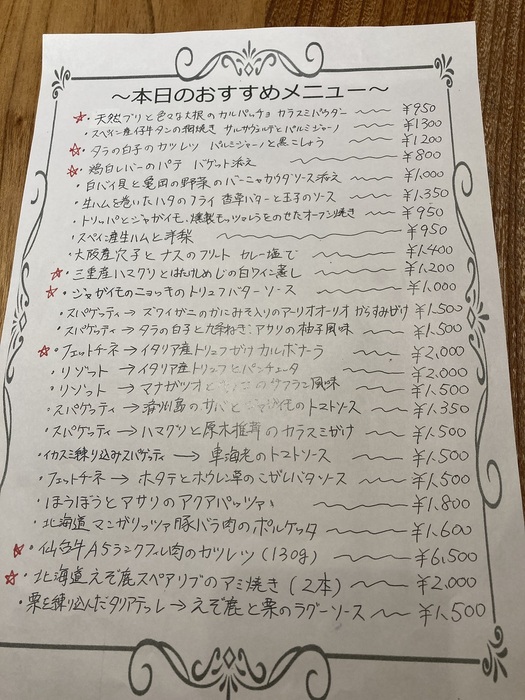 ～本日のおすすめメニュー～
☆・天然ブリと色々な大根のカルパッチョ カラスミパウダー ～～ ¥950
・スペイン産仔牛タンの網焼き サルサヴェルデとパルミジャーノ ～～ ¥1300
☆・タラの白子のカツレツ パルミジャーノと黒こしょう ～～ ¥1200
☆・鶏白レバーのパテ バゲット添え ～～ ¥800
・白バイ貝と亀岡の野菜のバーニャカウダソース添え ～～ ¥1,000
・生ハムを巻いたハタのフライ 香草バターと玉子のソース ～～ ¥1.350
・トリッパとジャガイモ、燻製モッツァレラをのせたオーブン焼き ～～ ¥950
・スペイン産生ハムと洋梨 ～～ ¥950
・大阪産穴子とナスのフリット カレー塩で ～～ ¥1.400
☆・三重産ハマグリとはたけしめじの白ワイン蒸し ～～ ¥1.200
☆・ジャガイモのニョッキのトリュフバターソース ～～ ¥1.000
・スパゲッティ→ズワイガニのかにみそ入りのアーリオオーリオ からすみがけ ¥1.500
・スパゲッティ→タラの白子と九条ねぎ、アサリの柚子風味 ～～ ¥1.500
☆・フェットチネ→イタリア産トリュフがけカルボナーラ ～～ ¥2,000
・リゾット→イタリア産トリュフとパンチェッタ ～～ ¥2.000
・リゾット→マナガツオと のサフラン風味 ～～ ¥1.500
・スパゲッティ→ 島のサバと のトマトソース ～～ ¥1.350
・スパゲッティ→ハマグリと原木椎茸のカラスミがけ ～～ ¥1.500
・イカスミ練り込みスパゲッティ→車海老のトマトソース ～～ ¥1.500
・フェットチネ→ホタテとホウレン草のこがしバタソース ～～ ¥1.500
・ほうぼうとアサリのアクアパッツァ ～～ ¥1.800
・北海道マンガリッツァ豚バラ肉のポルケッタ ～～ ¥1.600
☆・仙台牛A5ランクフィレ肉のカツレツ(130g) ～～ ¥6,500
☆・北海道えぞ鹿スペアリブのアミ焼き(2本) ～～ ¥2.000
・栗を練り込んだタリアテッレ→えぞ鹿と栗のラグーソース ～～ ¥1.500